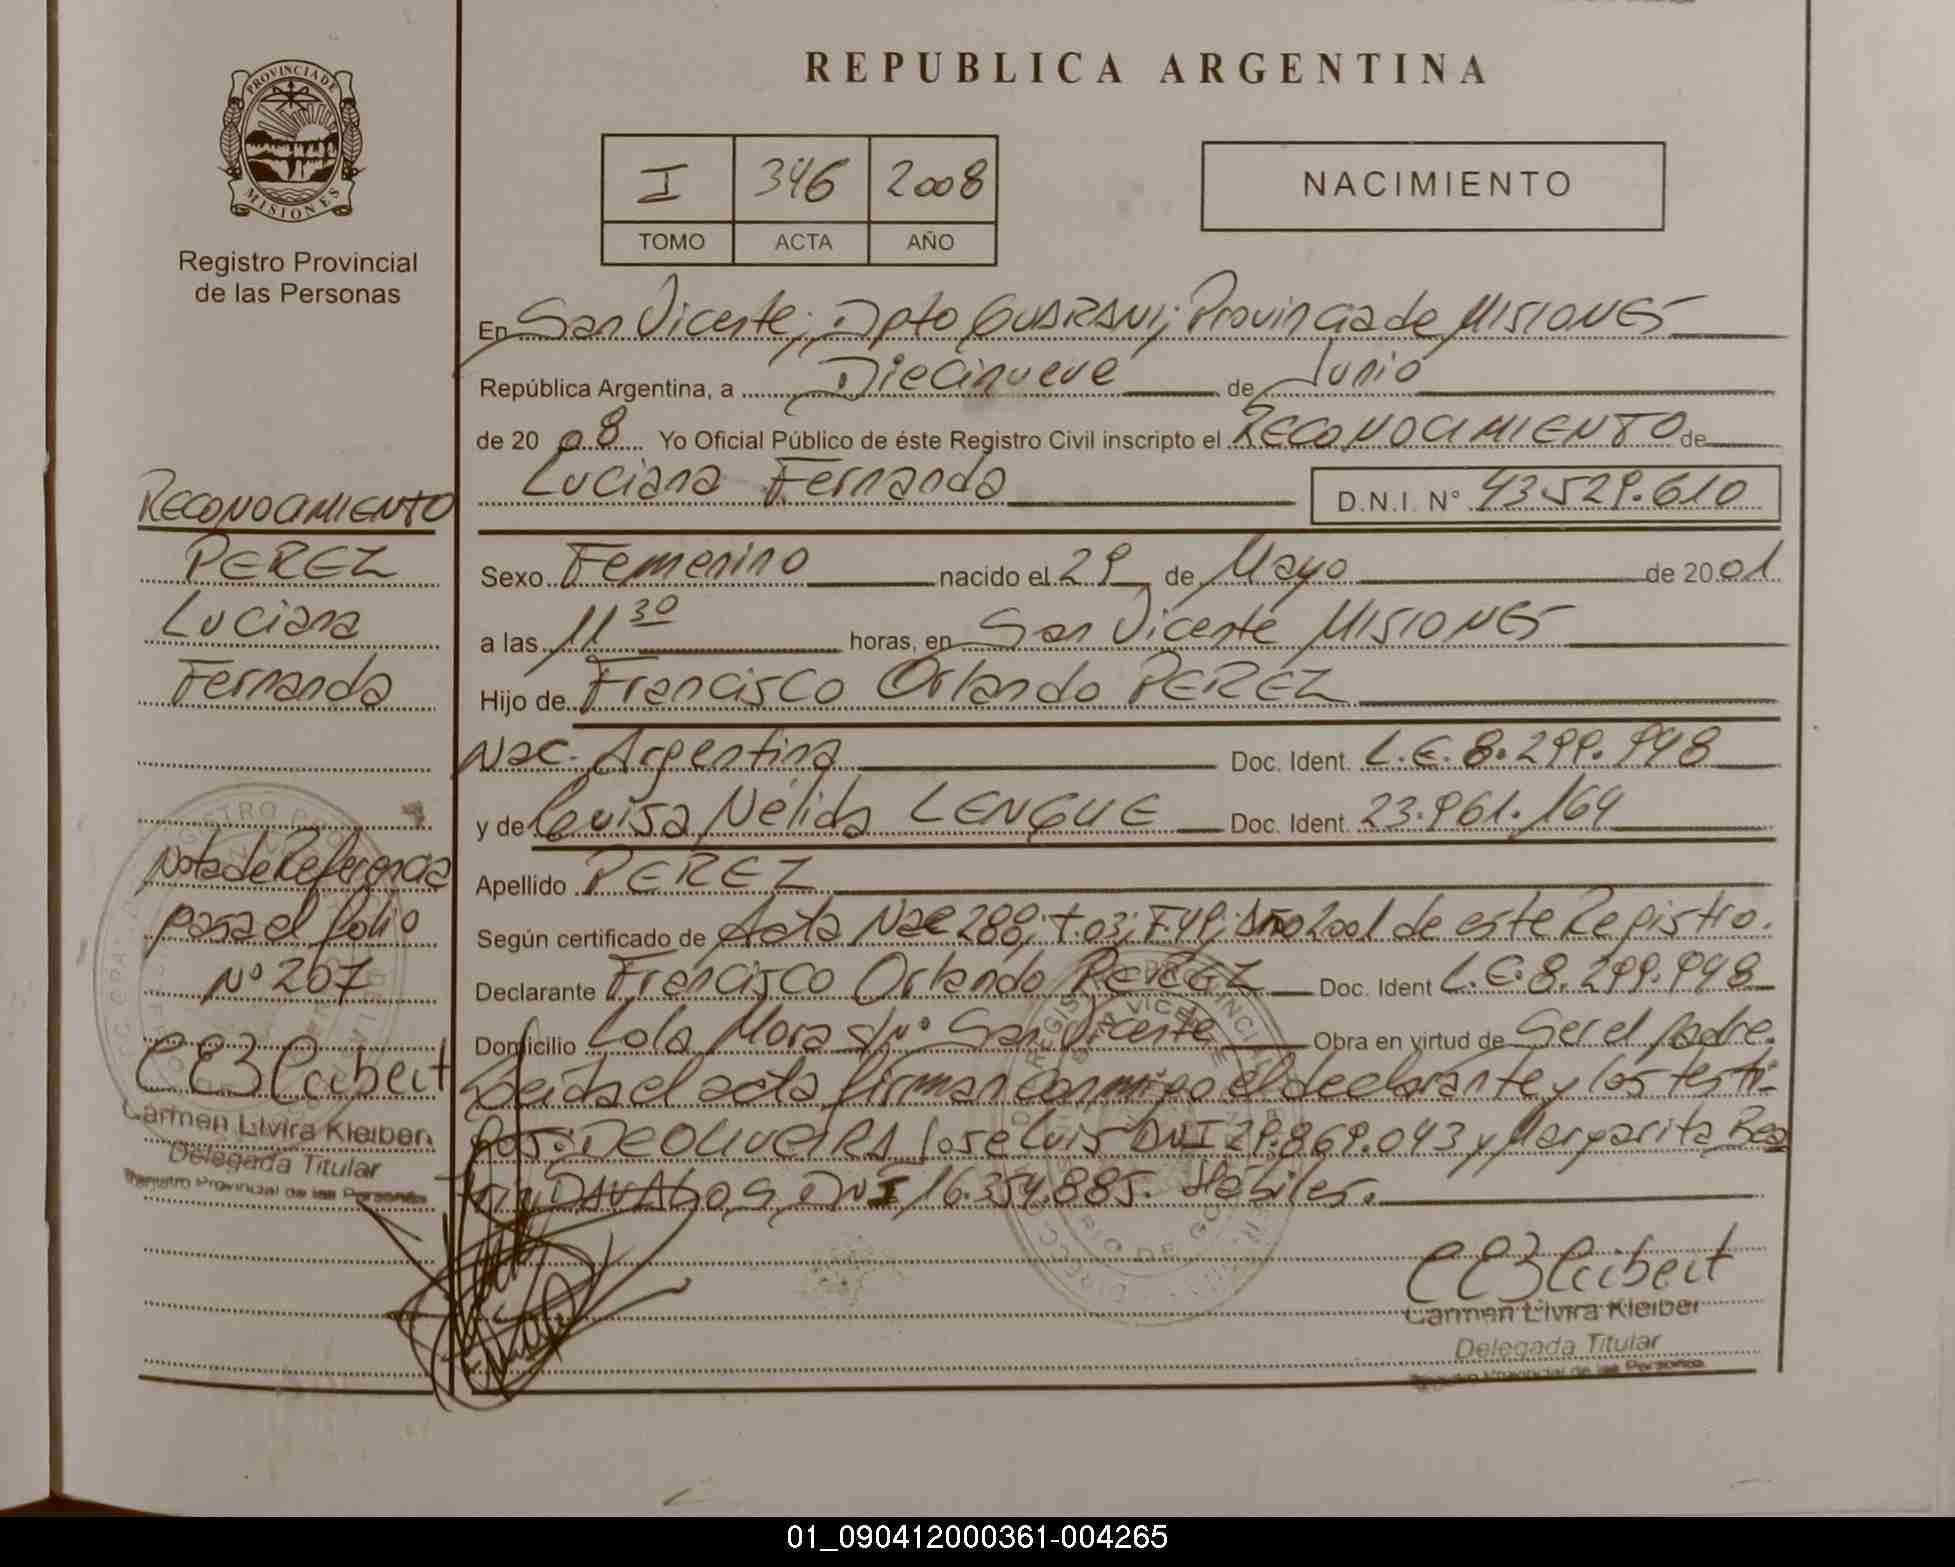 REPUBLICA ARGENTINA
PROVINCIA DE
MISIONES
Registro Provincial
de las Personas
I 346 2008
TOMO ACTA AÑO
NACIMIENTO
En San Vicente; Dpto GUARANI; Provincia de MISIONES
República Argentina, a Diecinueve de Junio
de 20 08 Yo Oficial Público de éste Registro Civil inscripto el RECONOCIMIENTO de
Luciana Fernanda D.N.I. N° 43.529.610
Sexo Femenino nacido el 29 de Mayo de 2001
a las 11 30 horas, en San Vicente MISIONES
Hijo de Francisco Orlando PEREZ
Nac. Argentina Doc. Ident. L.E. 8.299.998
y de Luisa Nélida LENGUE Doc. Ident. 23.961.164
Apellido PEREZ
Según certificado de Acta Nac 288; t.03; F.49; Año 2001 de este Registro.
Declarante Francisco Orlando PEREZ Doc. Ident L.E. 8.299.998
Domicilio Lola Mora s/nº San Vicente Obra en virtud de Ser el padre.
Leida el acta firman conmigo el declarante y los testi-
gos: DE OLIVEIRA Jose Luis DNI 29.869.043 y Margarita Bea
triz DAVALOS DNI 16.354.885. Hábiles.
Carmen Elvira Kleiber
Delegada Titular
Registro Provincial de las Personas
RECONOCIMIENTO
PEREZ
Luciana
Fernanda
Nota de Referencia
pasa al folio
Nº 207
Carmen Elvira Kleiber
Delegada Titular
Registro Provincial de las Personas
01_090412000361-004265